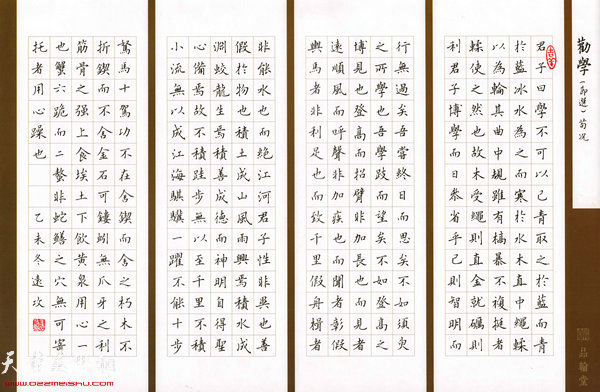 勸學（節選）荀况
君子曰學不可以已青取之於藍而青
於藍冰水為之而寒於水木直中繩輮
以為輪其曲中規雖有槁暴不復挺者
輮使之然也故木受繩則直金就礪則
利君子博學而日參省乎己則智明而
行無過矣吾嘗終日而思矣不如須臾
之所學也吾嘗跂而望矣不如登高之
博見也登高而招臂非加長也而見者
遠順風而呼聲非加疾也而聞者彰假
輿馬者非利足也而致千里假舟楫者
非能水也而絕江河君子性非異也善
假於物也積土成山風雨興焉積水成
淵蛟龍生焉積善成德而神明自得聖
心備焉故不積跬步無以至千里不積
小流無以成江海騏驥一躍不能十步
駑馬十駕功在不舍鍥而舍之朽木不
折鍥而不舍金石可鏤蚓無爪牙之利
筋骨之強上食埃土下飲黃泉用心一
也蟹六跪而二螯非蛇鱔之穴無可寄
托者用心躁也 乙未冬遠攻
品翰堂